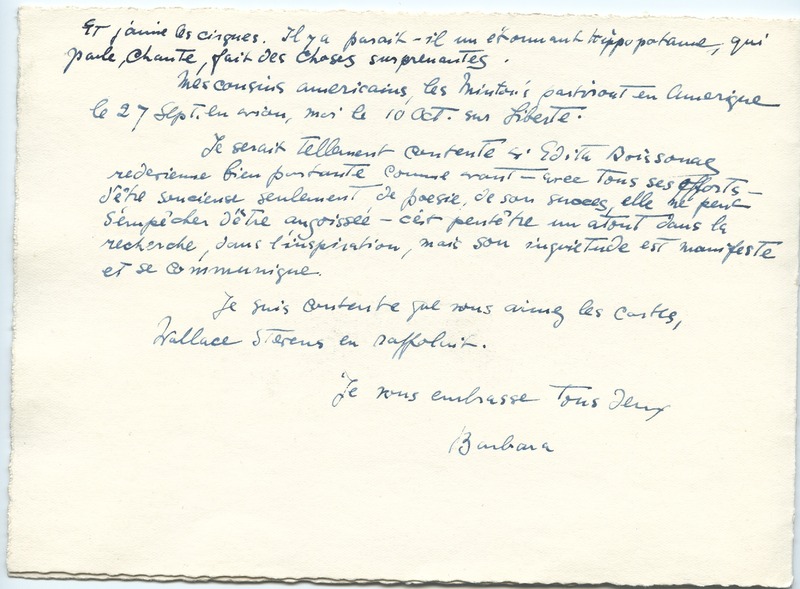 Et j'aime les cirques. Il y a parait-il un étonnant Hippopotame, qui
parle, chante, fait des choses surprenantes.
Mes cousins americains, les Minton's partiront en Amerique
le 27 Sept. en avion, moi le 10 Oct. sur Liberté.
Je serait tellement contente si Edita Boissonas
redevienne bien portante comme avant – avec tous ses efforts –
d'être soucieuse seulement de poesie, de son succes, elle ne peut
s'émpêcher d'être angoissée – c'ést peutêtre un atout dans la
recherche, dans l'inspiration, mais son inquietude est manifeste
et se communique.
Je suis contente que vous aimez les cartes,
Wallace Stevens en raffolait.
Je vous embrasse tous deux
Barbara